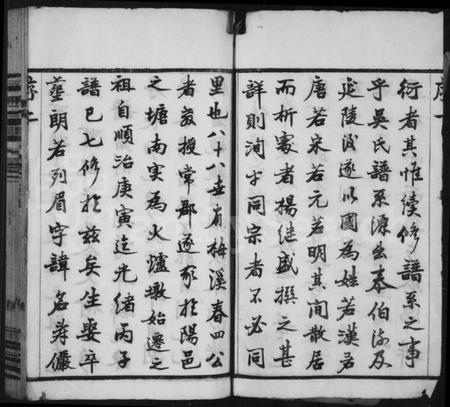 序一
衍者其惟續修譜系之事
乎吳氏譜系源出泰伯後及
延陵後遂以國為姓若漢若
唐若宋若元若明其間散居
而析處者楊繼盛撰之甚
詳則洵乎同宗者不必同
里也八十八世有梅溪春四公
者教授常郡遂家於陽邑
之塘南実為火爐墩始遷之
祖自順治庚寅迄光緒丙子
譜已七修於茲矣生娶卒
塟朗若列眉字諱名號儼
序二